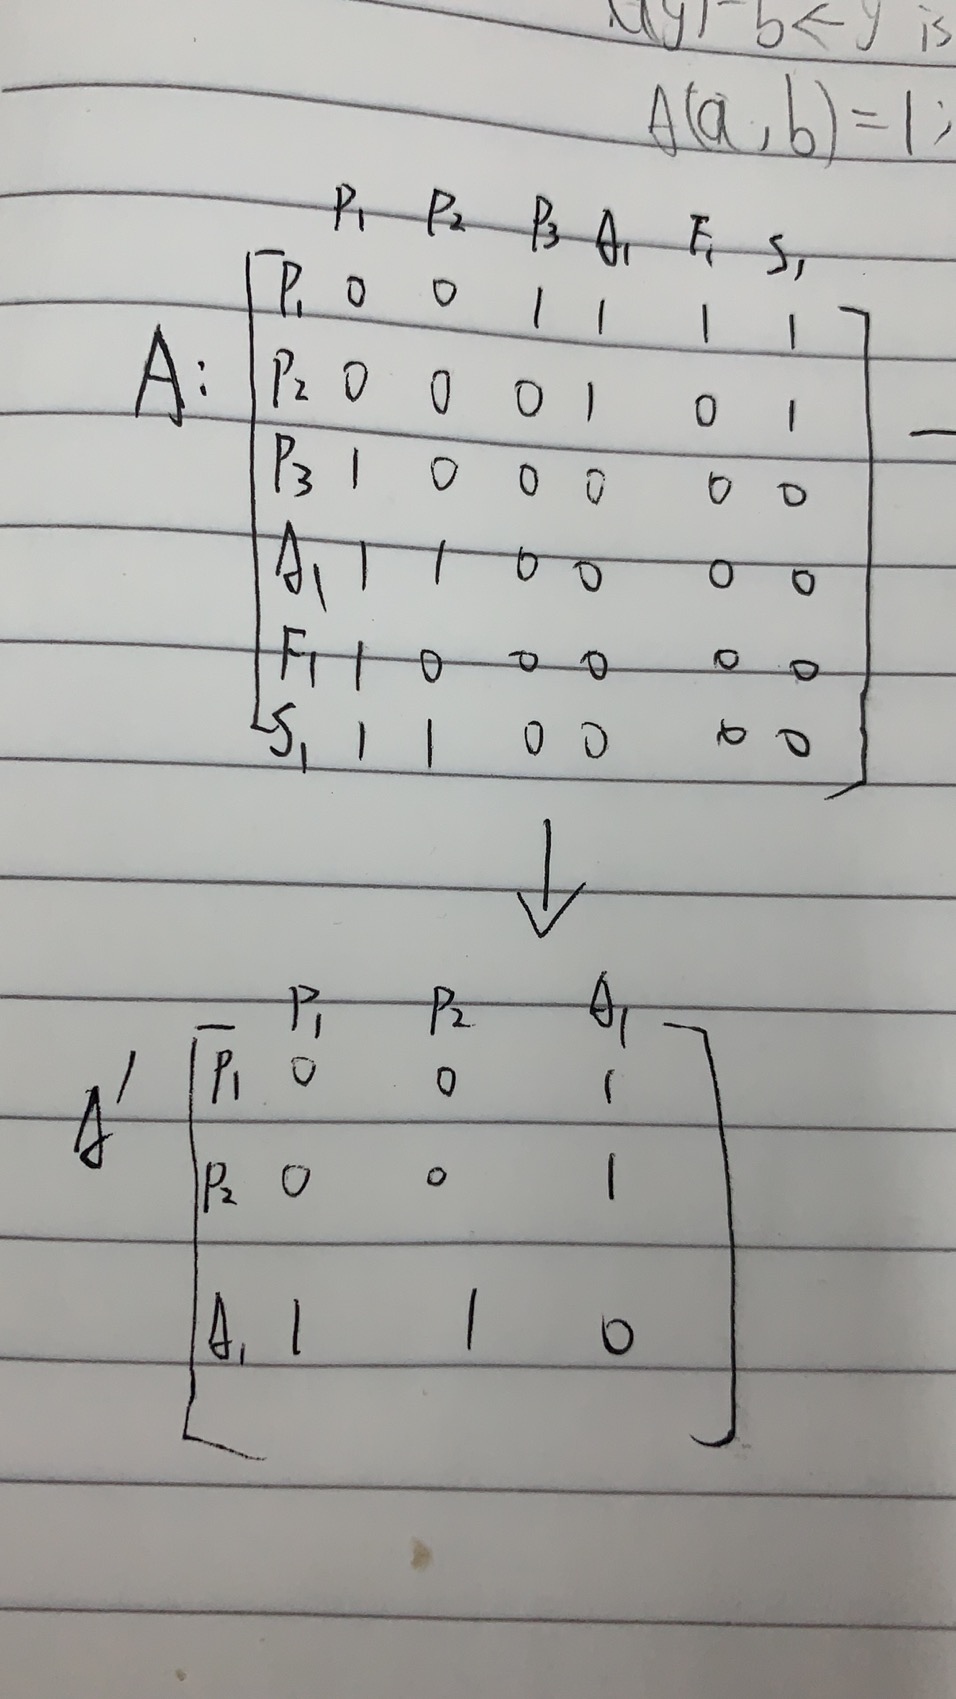 b ← y is
A(a, b) = 1;
P₁ P₂ P₃ A₁ F₁ S₁
P₁ 0 0 1 1 1 1
A: P₂ 0 0 0 1 0 1
P₃ 1 0 0 0 0 0
A₁ 1 1 0 0 0 0
F₁ 1 0 0 0 0 0
S₁ 1 1 0 0 0 0
↓
P₁ P₂ A₁
P₁ 0 0 1
A′ P₂ 0 0 1
A₁ 1 1 0